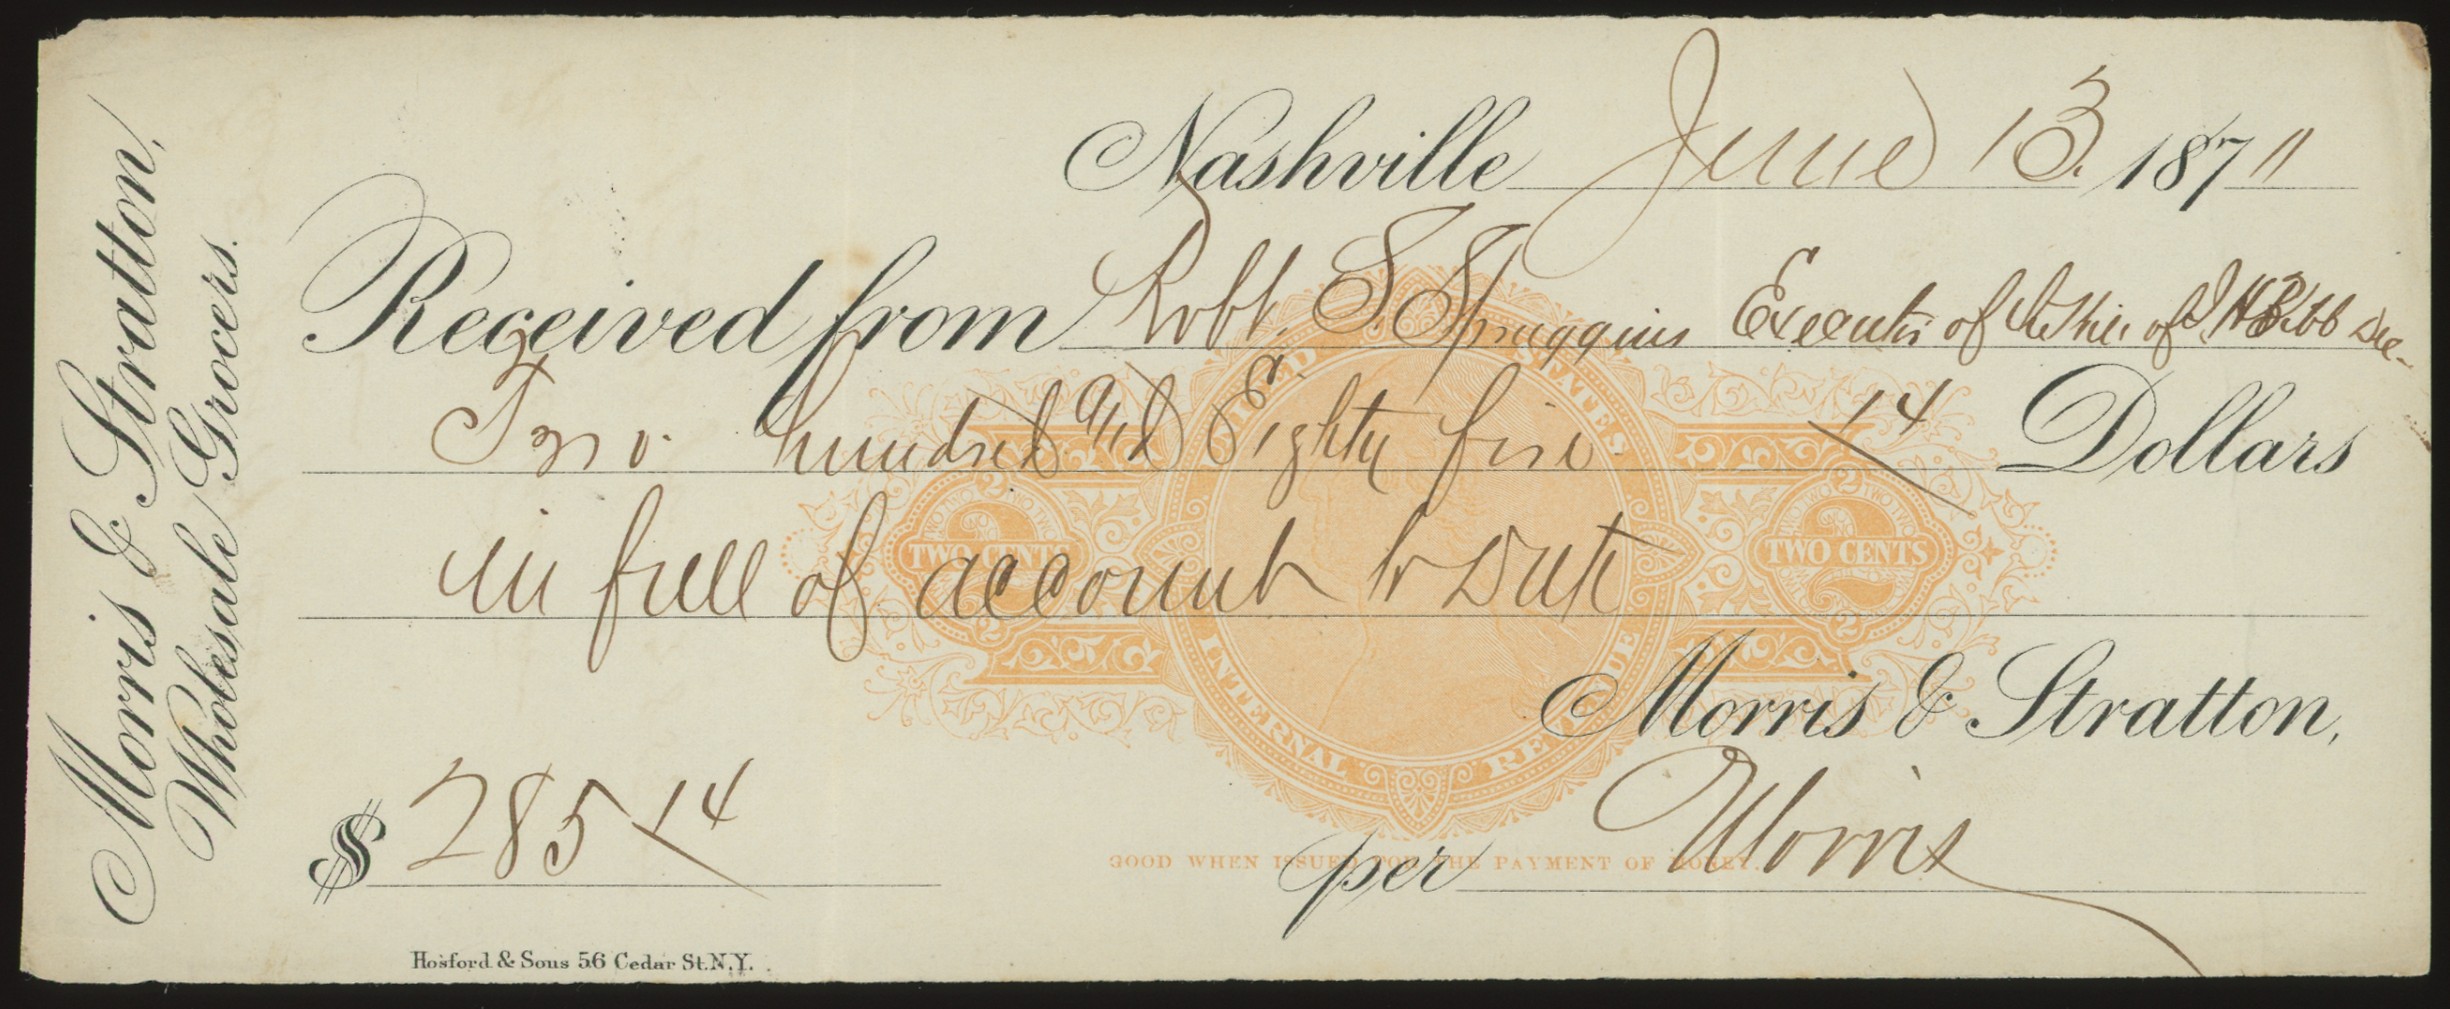 Morris & Stratton,
Wholesale Grocers.
Nashville June 13. 1871
Received from Robt. S. Spruggins Executor of of J H Bibb Dec
Two hundred and Eighty five 14 Dollars
in full of account to Date
Morris & Stratton,
$ 285 14
per Morris
Hosford & Sons 56 Cedar St. N.Y.
UNITED STATES
INTERNAL REVENUE
2 TWO CENTS
2 TWO CENTS
GOOD WHEN ISSUED FOR THE PAYMENT OF MONEY.